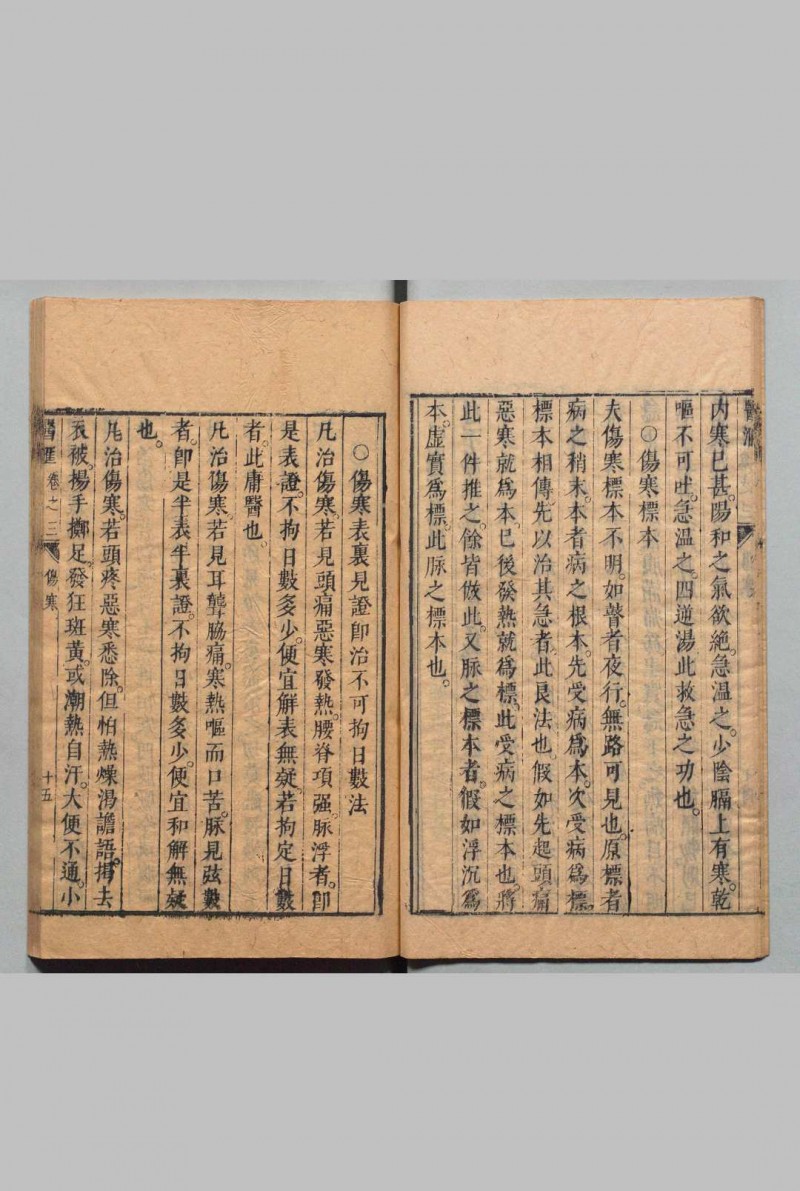 内寒已甚。陽和之氣欲絶。急温之。少陰膈上有寒。乾
嘔不可吐。急温之。四逆湯此救急之功也。
〇傷寒標本
夫傷寒標本不明。如瞽者夜行。無路可見也。原標者
病之稍末。本者病之根本。先受病爲本。次受病爲標。
標本相傳。先以治其急者。此良法也。假如先起頭痛
惡寒就爲本。已後發熱就爲標。此受病之標本也。將
此一件推之。餘皆倣此。又脉之標本者。假如浮沉爲
本。虛實爲標。此脉之標本也。
〇傷寒表裏見證卽治不可拘日數法
凡治傷寒。若見頭痛惡寒發熱。腰脊項强。脉浮者。卽
是表證。不拘日數多少。便宜解表無疑。若拘定日數
者。此庸醫也。
凡治傷寒。若見耳聾脇痛。寒熱嘔而口苦。脉見弦數
者。卽是半表半裏證。不拘日數多少。便宜和解無疑
也。
凡治傷寒。若頭疼惡寒悉除。但怕熱燥渴譫語。揭去
衣被。揚手擲足。發狂班黃。或潮熱自汗。大便不通。小
醫匯 卷之三 傷寒 十五